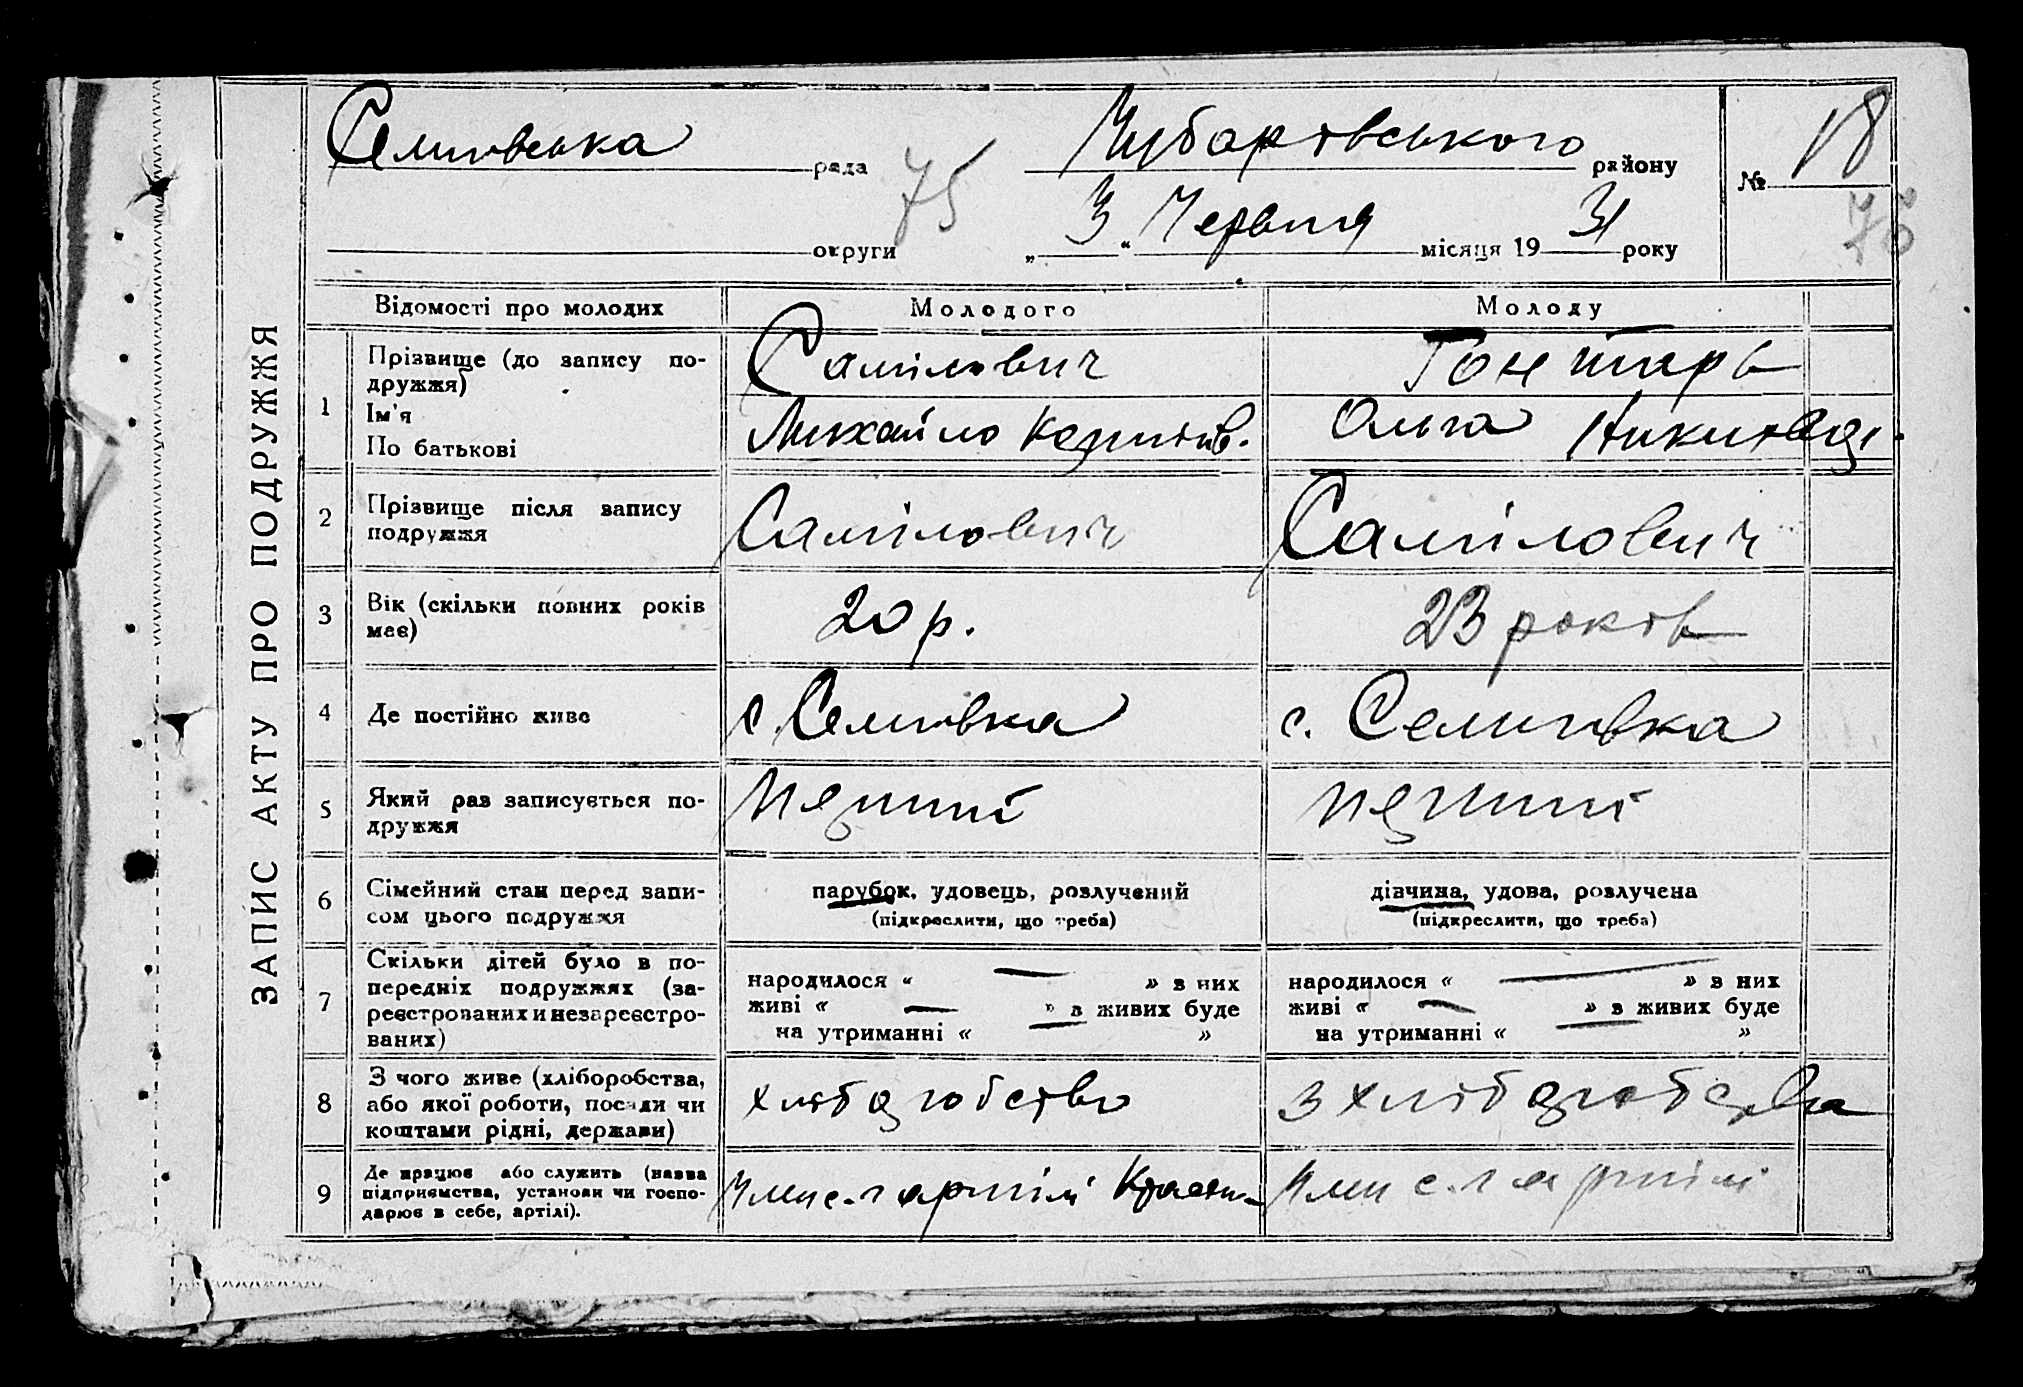 ЗАПИС АКТУ ПРО ПОДРУЖЖЯ
рада 75 Чубарівського району № 18
75
округи „3“ Червня місяця 1931 року
Відомості про молодих Молодого Молоду
1 Прізвище (до запису по-
дружжя) Самілович Гонтарь
Ім'я
По батькові Михайло Ольга
2 Прізвище після запису
подружжя Самілович Самілович
3 Вік (скільки повних років
має) 20 р. 23 років
4 Де постійно живе с. Семиівка с. Семиівка
5 Який раз записується по-
дружжя перший перший
6 Сімейний стан перед запи-
сом цього подружжя парубок, удовець, розлучений дівчина, удова, розлучена
(підкреслити, що треба) (підкреслити, що треба)
7 Скільки дітей було в по-
передніх подружжях (за-
реєстрованих и незареєстро-
ваних)
народилося “ — » в них народилося “ — » в них
живі “ — » в живих буде живі “ — » в живих буде
на утриманні “ — » на утриманні “ — »
8 З чого живе (хліборобства,
або якої роботи, посади чи
коштами рідні, держави) хліборобство з хліборобства
9 Де працює або служить (назва
підприємства, установи чи госпо-
дарює в себе, артілі). Член с.-г артілі Член с.г артілі